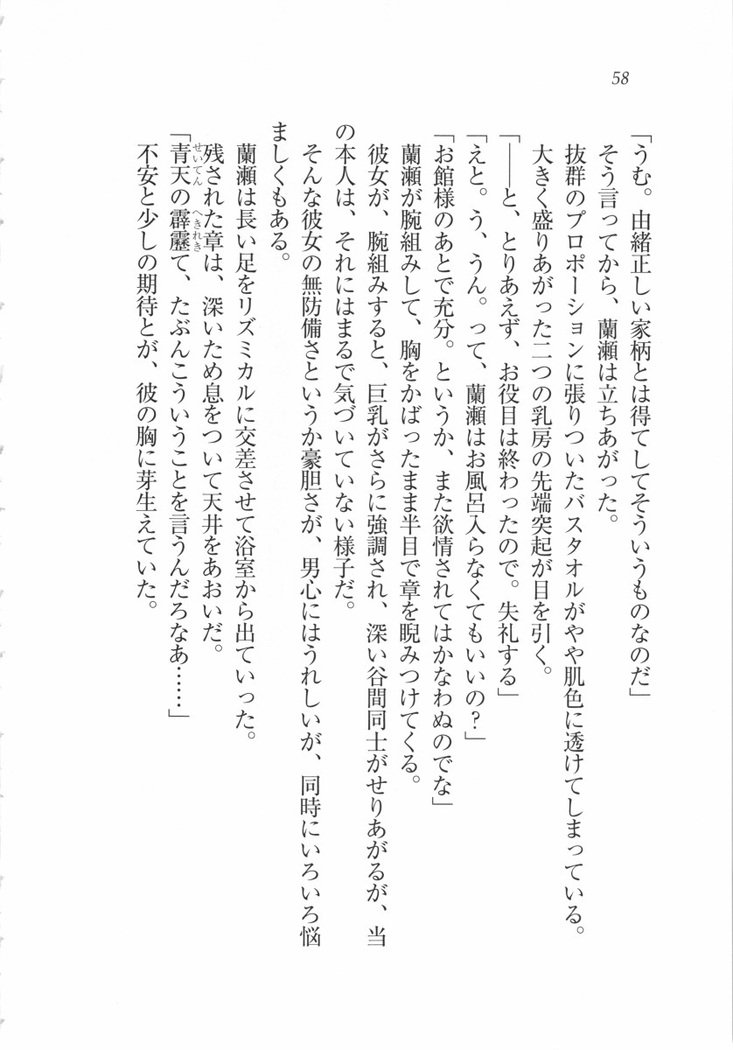 58
「うむ。由緒正しい家柄とは得てしてそういうものなのだ」
そう言ってから、蘭瀬は立ちあがった。
抜群のプロポーションに張りついたバスタオルがやや肌色に透けてしまっている。
大きく盛りあがった二つの乳房の先端突起が目を引く。
「――と、とりあえず、お役目は終わったので。失礼する」
「えと。う、うん。って、蘭瀬はお風呂入らなくてもいいの？」
「お館様のあとで充分。というか、また欲情されてはかなわぬのでな」
蘭瀬が腕組みして、胸をかばったまま半目で章を睨みつけてくる。
彼女が、腕組みすると、巨乳がさらに強調され、深い谷間同士がせりあがるが、当
の本人は、それにはまるで気づいていない様子だ。
そんな彼女の無防備さというか豪胆さが、男心にはうれしいが、同時にいろいろ悩
ましくもある。
蘭瀬は長い足をリズミカルに交差させて浴室から出ていった。
残された章は、深いため息をついて天井をあおいだ。
「青天の霹靂て、たぶんこういうことを言うんだろなあ……」
せいてん へきれき
不安と少しの期待とが、彼の胸に芽生えていた。